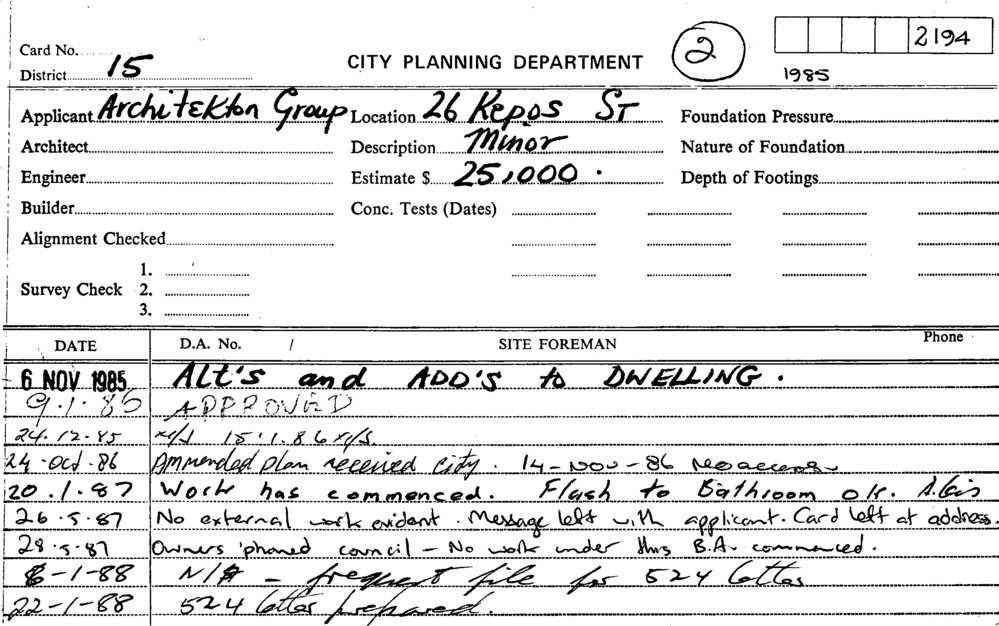 2194
Card No.
District 15
CITY PLANNING DEPARTMENT
2
1985
Applicant Architekton Group
Location 26 Kepos ST
Foundation Pressure
Architect
Description Minor
Nature of Foundation
Engineer
Estimate $ 25,000.
Depth of Footings
Builder
Conc. Tests (Dates)
Alignment Checked
Survey Check
1.
2.
3.
DATE
D.A. No. /
SITE FOREMAN
Phone
6 NOV 1985 ALT'S and ADD'S to DWELLING.
9.1.85 APPROVED
24.12.85 15.1.86
24-Oct-86 Ammended plan received city. 14-NOV-86 No access
20.1.87 Work has commenced. Flash to Bathroom ok.
26.5.87 No external work evident. Message left with applicant. Card left at address.
28.5.87 Owners 'phoned council - No work under this B.A. commenced.
6-1-88 - request file for 524 letter
22-1-88 524 letter prepared.